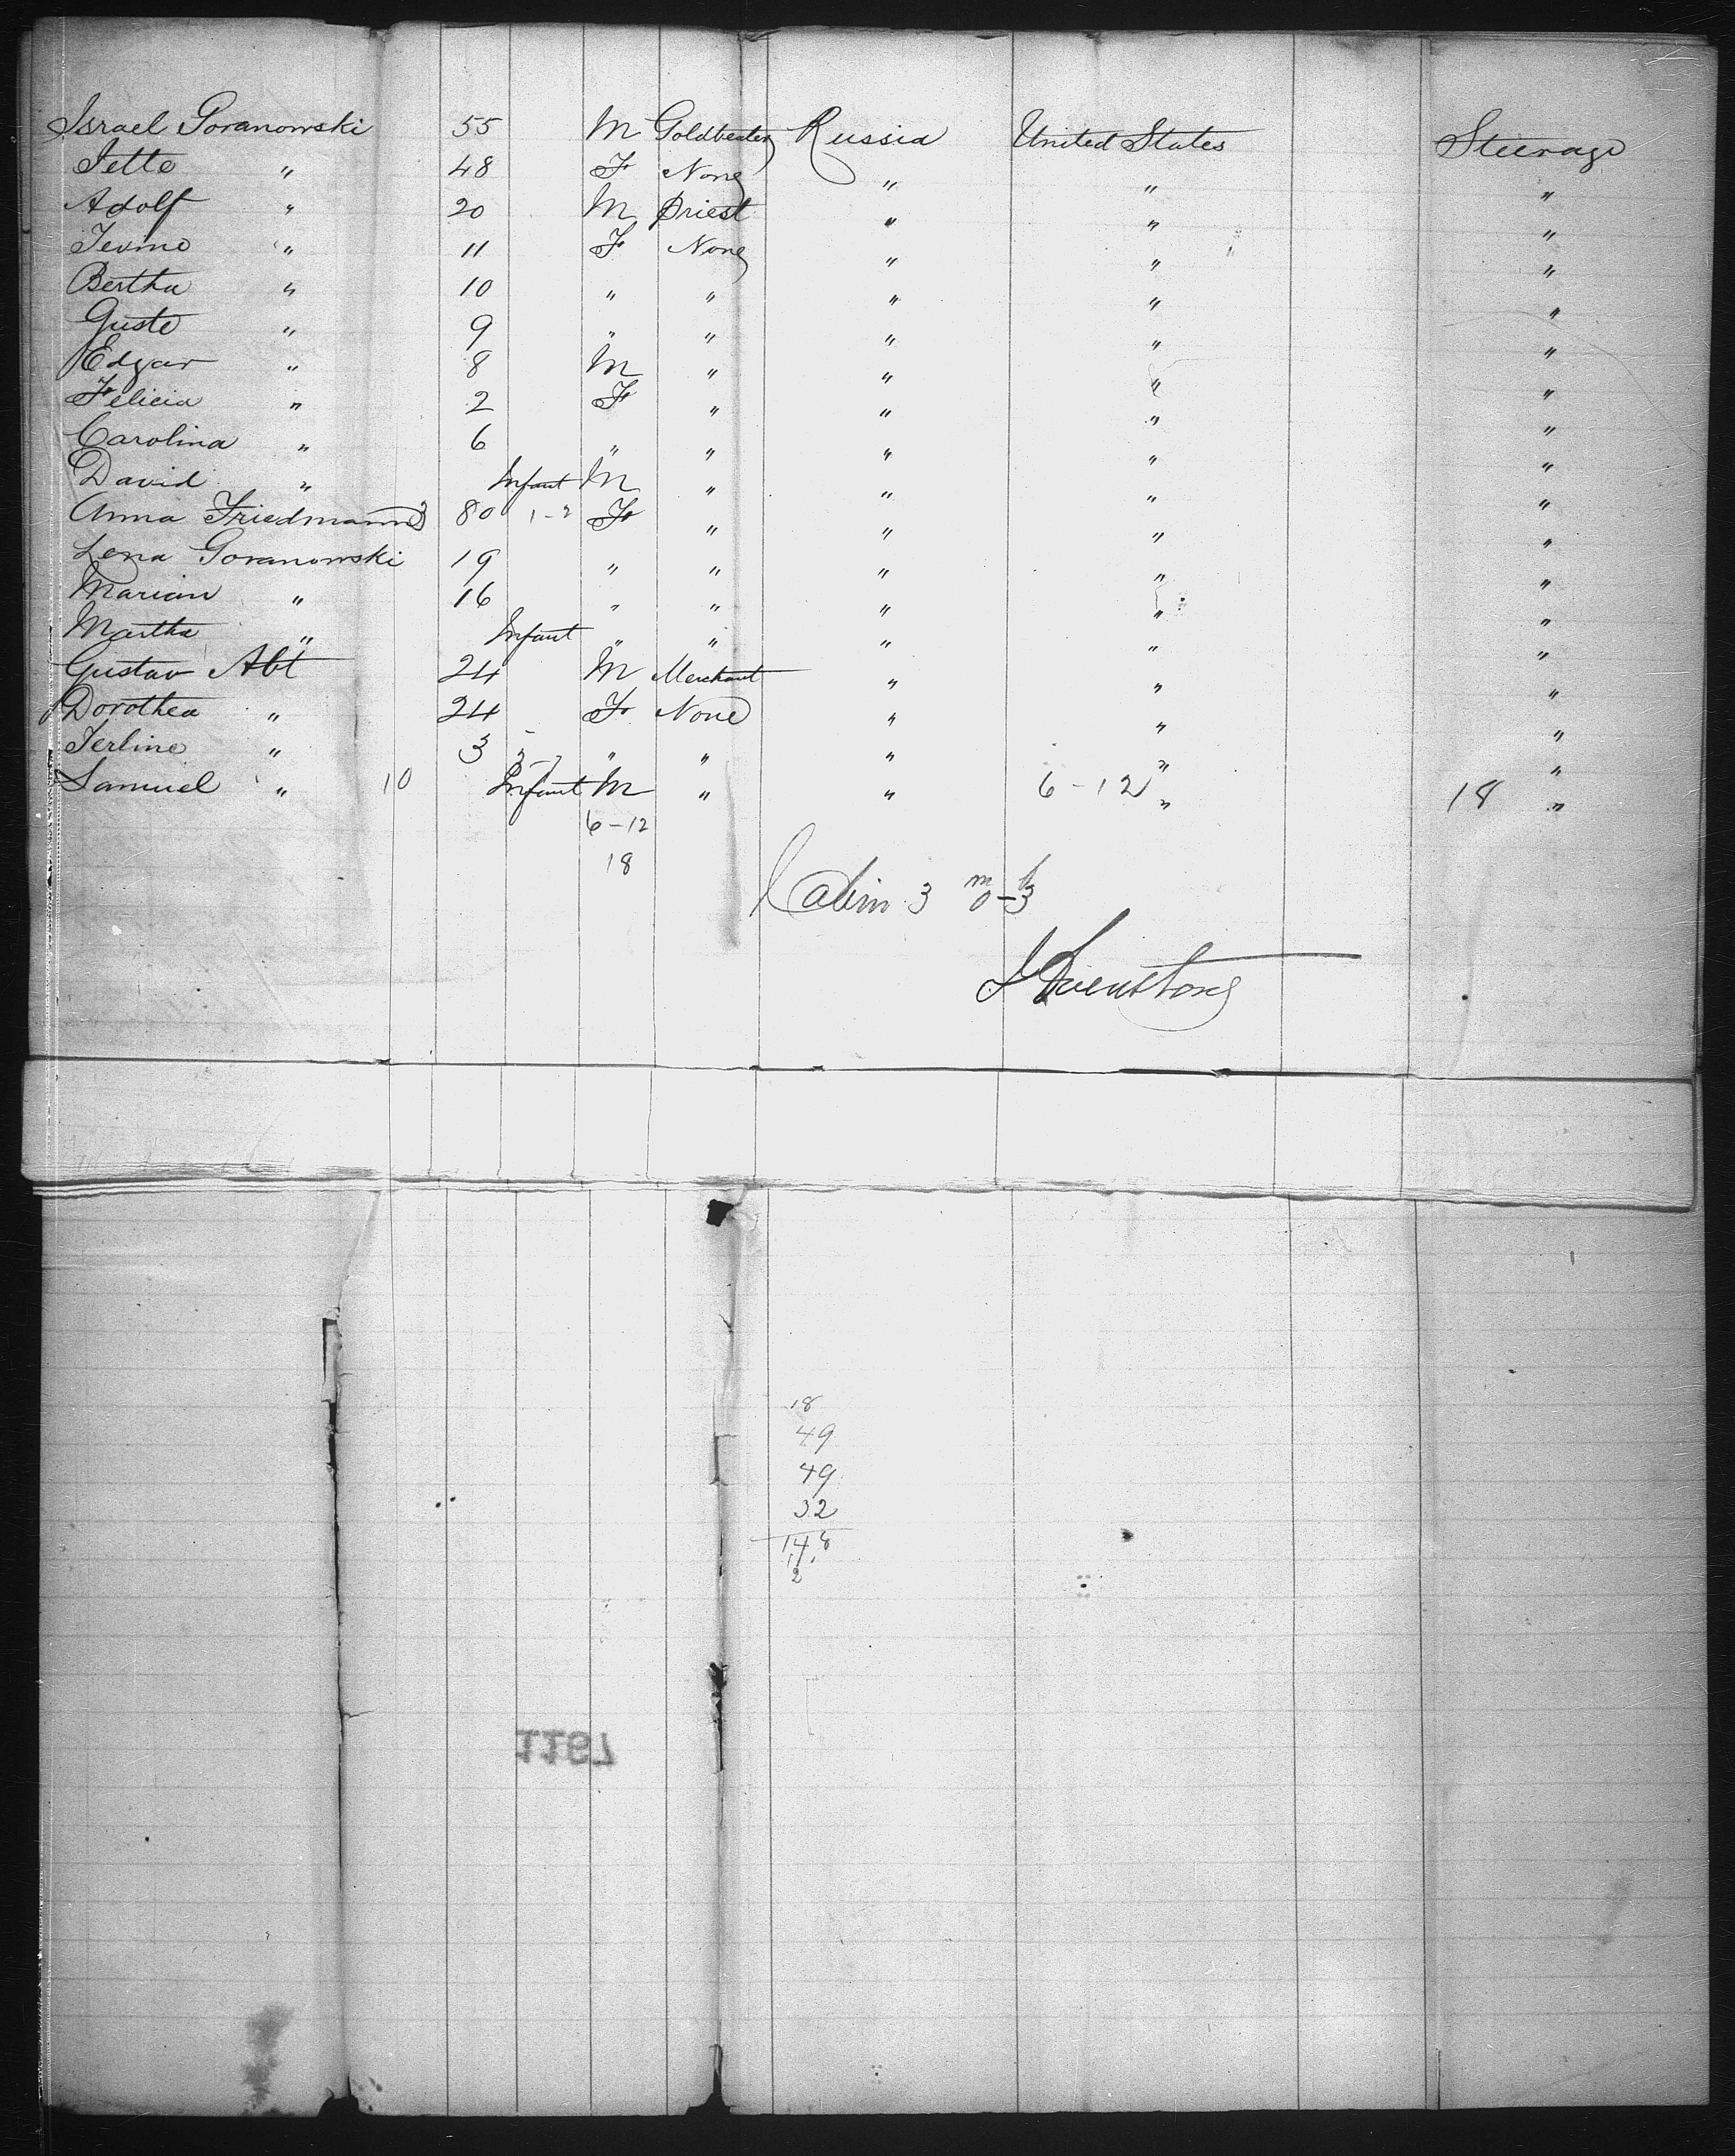 Israel Goranowski 55 M Goldbeater Russia United States Steerage
Jette " 48 F None " " "
Adolf " 20 M Priest " " "
" 11 F None " " "
Bertha " 10 " " " " "
Guste " 9 " " " " "
Edgar " 8 M " " " "
Felicia " 2 F " " " "
Carolina " 6 " " " " "
David " Infant M " " " "
Anna Friedmann 80 1-2 F " " " "
Lena Goranowski 19 " " " " "
Mariam " 16 " " " " "
Martha " Infant " " " " "
Gustav Abt 24 M Merchant " " "
Dorothea " 24 F None " " "
Terline " 3 " " " " "
Samuel " 10 Infant M " " 6-12 " 18 "
6-12
18
Cabin 3 m 0 - f 3
18
49
49
32
148
2
1167